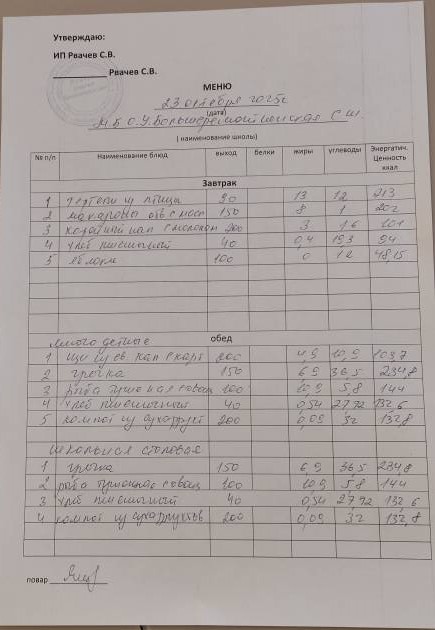 Утверждаю:
ИП Рвачев С.В.
Рвачев С.В.
МЕНЮ
23 октября 2025г
(дата)
М.Б.О.У.
С Ш.
( наименование школы)
№ п/п Наименование блюд выход белки жиры углеводы Энергатич. Ценность ккал
Завтрак
1 тефтели из птицы 90 13 12 213
2 макароны отв с мосл 150 8 1 202
3 кофейный нап с молоком 200 3 16 101
4 хлеб пшеничный 40 0,4 19,3 94
5 яблоки 100 0 12 48,15
многодетные обед
1 щи из св. кап с карт 200 4,9 10,9 103,7
2 гречка 150 6,9 36,5 234,8
3 рыба тушоная с овощ 100 10,9 5,8 144
4 хлеб пшеничный 40 0,54 27,92 132,6
5 компот из сухофрукт 200 0,09 32 132,8
школьная столовая
1 гречка 150 6,9 36,5 234,8
2 рыба тушонная с овощ 100 10,9 5,8 144
3 хлеб пшеничный 40 0,54 27,92 132,6
4 компот из сухофруктов 200 0,09 32 132,8
повар